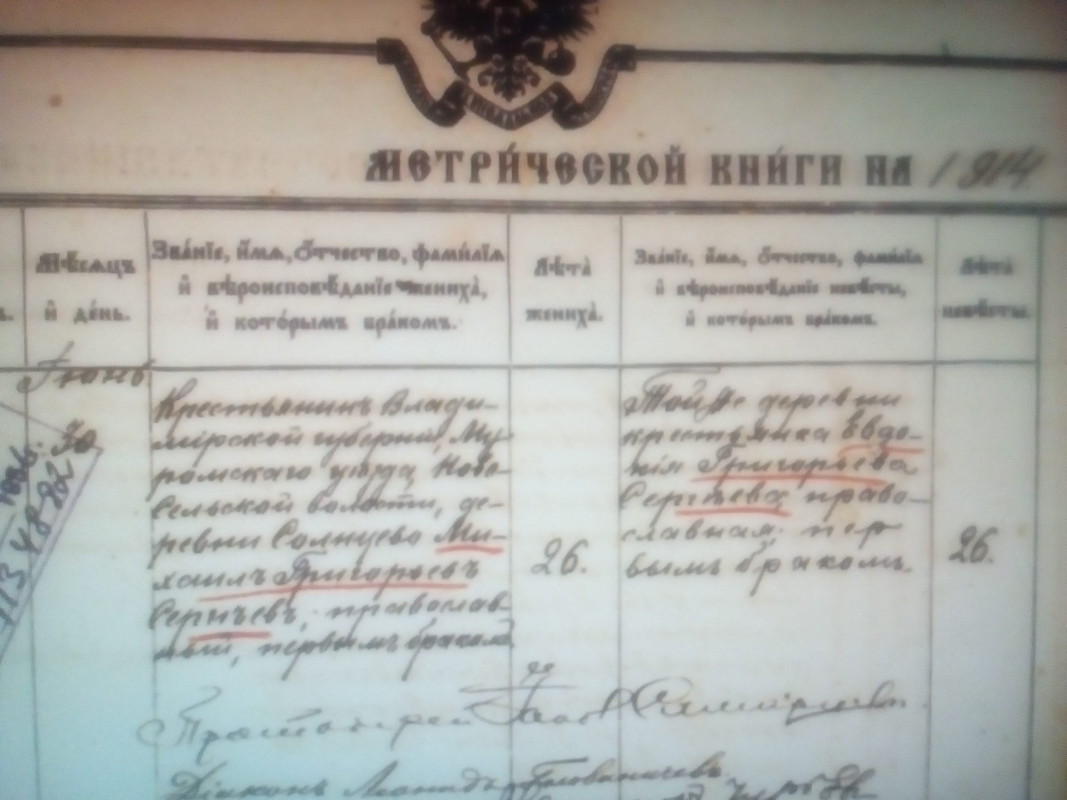 МЕТРИ́ЧЕСКОЙ КНИ́ГИ НА 1914
Мѣсяцъ
и҆ де́нь.
Зва́нїе, и҆́мя, ѻ҆́тчество, фами́лїя
и҆ вѣроисповѣ́данїе жениха̀,
и҆ кото́рымъ бра́комъ.
Лѣта̀
жениха̀.
Зва́нїе, и҆́мя, ѻ҆́тчество, фами́лїя
и҆ вѣроисповѣ́данїе невѣ́сты,
и҆ кото́рымъ бра́комъ.
Лѣта̀
невѣ́сты.
Іюнь
30
Крестьянинъ Влади-
мірской губерніи, Му-
ромскаго уѣзда, Ново-
сельской волости, де-
ревни Солнцево Ми-
хаилъ Григорьевъ
Сергѣевъ, православ-
ный, первымъ бракомъ.
26.
Той же деревни
крестьянка Евдо-
кія Григорьева
Сергѣева, право-
славная, пер
вымъ бракомъ.
26.
113 4882
Протоіерей
Діаконъ Леонидъ